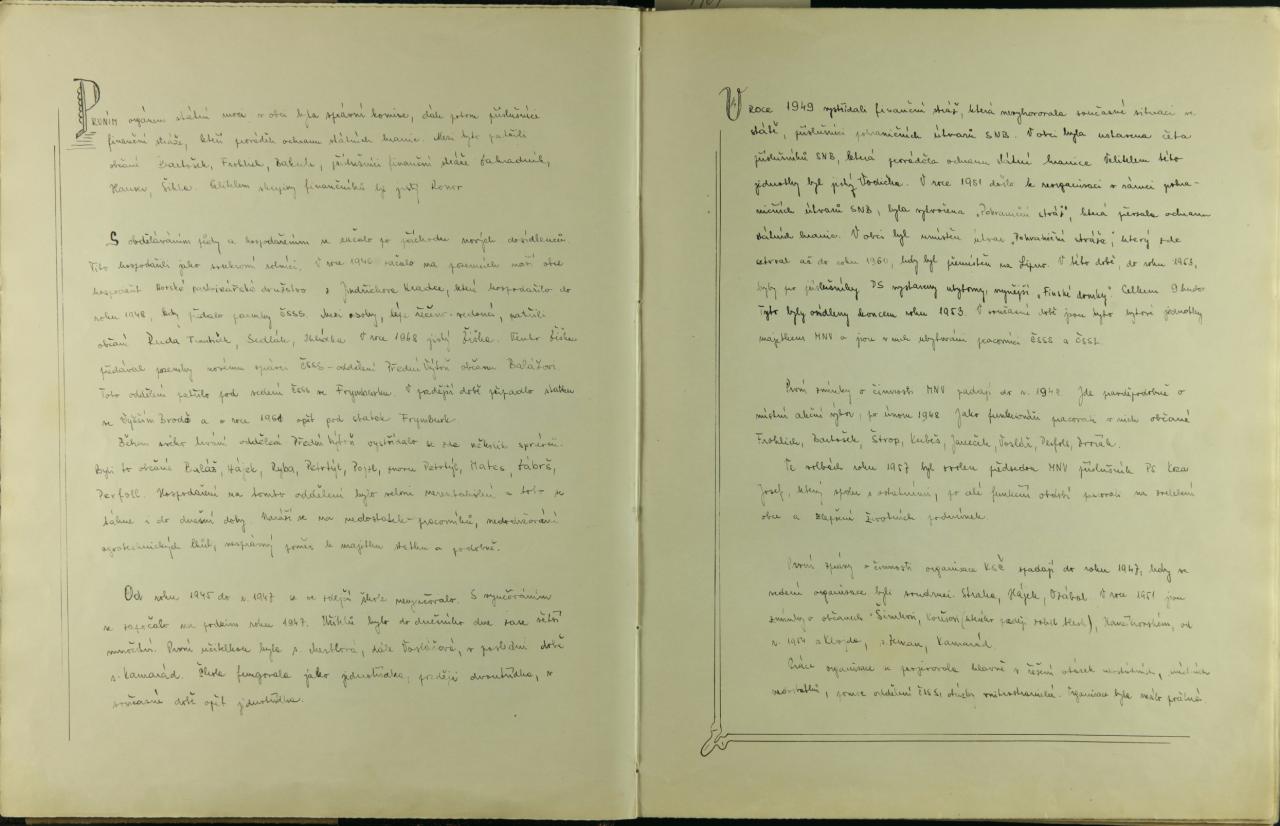 PRVNÍM orgánem státní moci v obci byla správní komise, dále potom příslušníci
finanční stráže, kteří prováděli ochranu státních hranic. Mezi tyto patřili
občané Bartošek, Frohlich, Bakule, příslušníci finanční stráže Zahradník,
Hauser, Šihla. Velitelem skupiny finančníků byl jistý Roner
S obděláváním půdy a hospodařením se začalo po příchodu nových dosídlenců.
Tito hospodařili jako soukromí rolníci. V roce 1946 začalo na pozemcích naší obce
hospodařit Horské pastvinářské družstvo z Jindřichova Hradce, které hospodařilo do
roku 1948, kdy předalo pozemky ČSSS. Mezi osoby, lépe řečeno vedoucí, patřili
občané Ruda, Sedlák, V roce 1948 jistý Šiška. Tento Šiška
předával pozemky novému správci ČSSS - oddělení Přední Výtoň občanu Balážovi
Toto oddělení patřilo pod vedení ČSSS ve Frymburku. V pozdější době připadlo statku
ve Vyšším Brodě a v roce 1961 opět pod statek Frymburk.
Během svého trvání oddělení Přední Výtoň vystřídalo se zde několik správců.
Byli to občané Baláž, Hájek, Ryba, Petrtýl, Pojsl, znovu Petrtýl, Mates, Zábrš,
Perfoll. Hospodaření na tomto oddělení bylo velmi nerentabilní a toto se
táhne i do dnešní doby. Naráží se na nedostatek pracovníků, nedodržování
agrotechnických lhůt, nesprávný poměr k majetku statku a podobně.
Od roku 1945 do r. 1947 se ve zdejší škole nevyučovalo. S vyučováním
se započalo na podzim roku 1947. Učitelů bylo do dnešního dne zase větší
množství. První učitelkou byla s. dále Vosláčová, v poslední době
s. Kamarád. Škola fungovala jako jednotřídka, později dvoutřídka, v
současné době opět jednotřídka.
V ROCE 1949 vystřídali finanční stráž, která nevyhovovala současné situaci ve
státě, příslušníci pohraničních útvarů SNB. V obci byla ustavena četa
příslušníků SNB, která prováděla ochranu státní hranice. Velitelem této
jednotky byl jistý Vodička. V roce 1951 došlo k reorganisaci v rámci pohra-
ničních útvarů SNB, byla vytvořena "Pohraniční stráž", která převzala ochranu
státních hranic. V obci byl umístěn útvar "Pohraniční stráže", který zde
setrval až do roku 1960, kdy byl přemístěn na Lipno. V této době, do roku 1953,
byly pro příslušníky PS vystaveny ubytovny, nynější "Finské domky". Celkem 9 budov
Tyto byly osídleny koncem roku 1953. V současné době jsou tyto bytové jednotky
majetkem MNV a jsou v nich ubytováni pracovníci ČSSS a ČSSL.
První zmínky o činnosti MNV spadají do r. 1948. Jde pravděpodobně o
místní akční výbor, po únoru 1948 jako funkcionáři pracovali v nich občané
Frohlich, Bartošek, Štrop, Kubeš, Janeček, Vosláč, Perfoll, Dvořák.
Ve volbách roku 1957 byl zvolen předsedou MNV příslušník PS Koza
Josef, který spolu s ostatními, po celé funkční období pracovali na zvelebení
obce a zlepšení životních podmínek.
První zprávy o činnosti organisace KSČ spadají do roku 1947, kdy ve
vedení organisace byli soudruzi Straka, Hájek, Vzábal. V roce 1951 jsou
zmínky o občanech Šimkovi, Havelkovském, od
r. 1954 s. Klojda, s. Zeman, Kamarád.
Práce organisace se projevovala hlavně v řešení otázek
nedostatků, pomoc oddělení ČSSS, otázky vnitrostranické. Organisace byla málo početná.